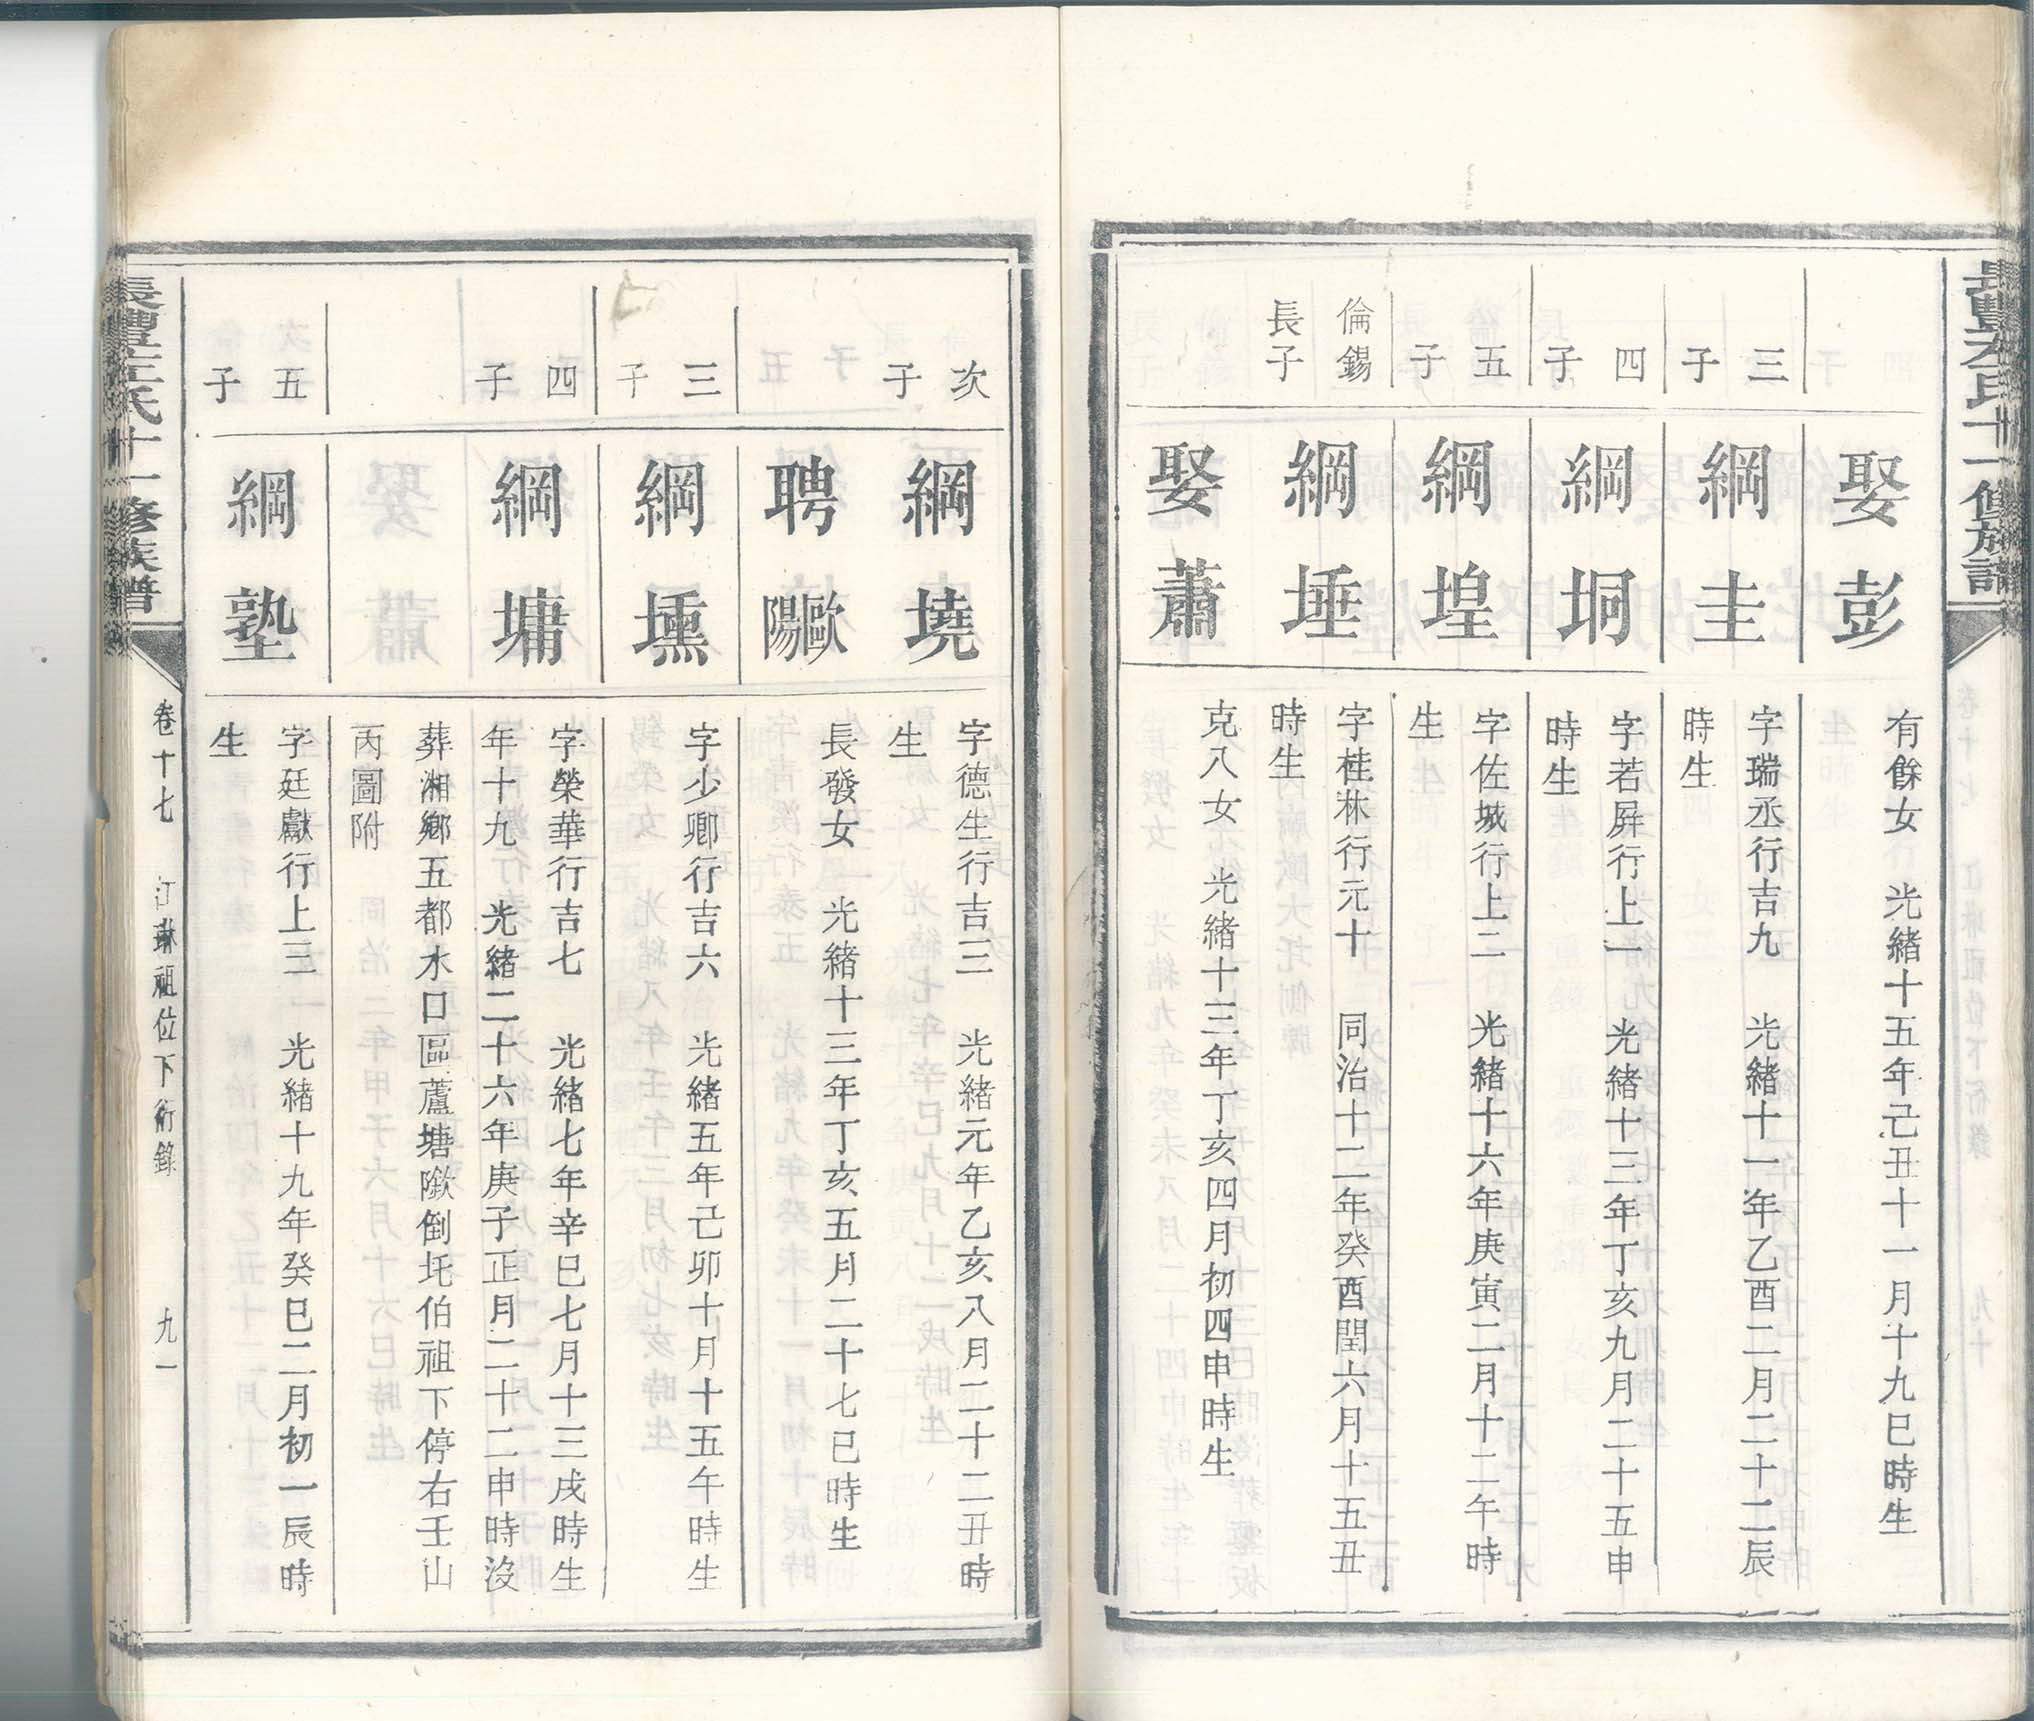 娶彭
有餘女　光緒十五年己丑十一月十九巳時生
三子
綱圭
字瑞丞行吉九　光緒十一年乙酉二月二十二辰
時生
四子
綱坰
字若屏行上一　光緒十三年丁亥九月二十五申
時生
五子
綱堭
字佐城行上二　光緒十六年庚寅二月十二午時
生
倫錫
長子
綱埵
字桂林行元十　同治十二年癸酉閏六月十五丑
時生
娶蕭
克八女　光緒十三年丁亥四月初四申時生
次子
綱墝
字德生行吉三　光緒元年乙亥八月二十二丑時
生
聘歐陽
長發女　光緒十三年丁亥五月二十七巳時生
三子
綱壎
字少卿行吉六　光緒五年己卯十月十五午時生
四子
綱墉
字榮華行吉七　光緒七年辛巳七月十三戌時生
年十九　光緒二十六年庚子正月二十二申時沒
葬湘鄉五都水口區蘆塘隊倒坵伯祖下停右壬山
丙圖附
五子
綱塾
字廷獻行上三　光緒十九年癸巳二月初一辰時
生
長澧左氏十一修族譜
卷十七　汀琳祖位下衍錄　九一